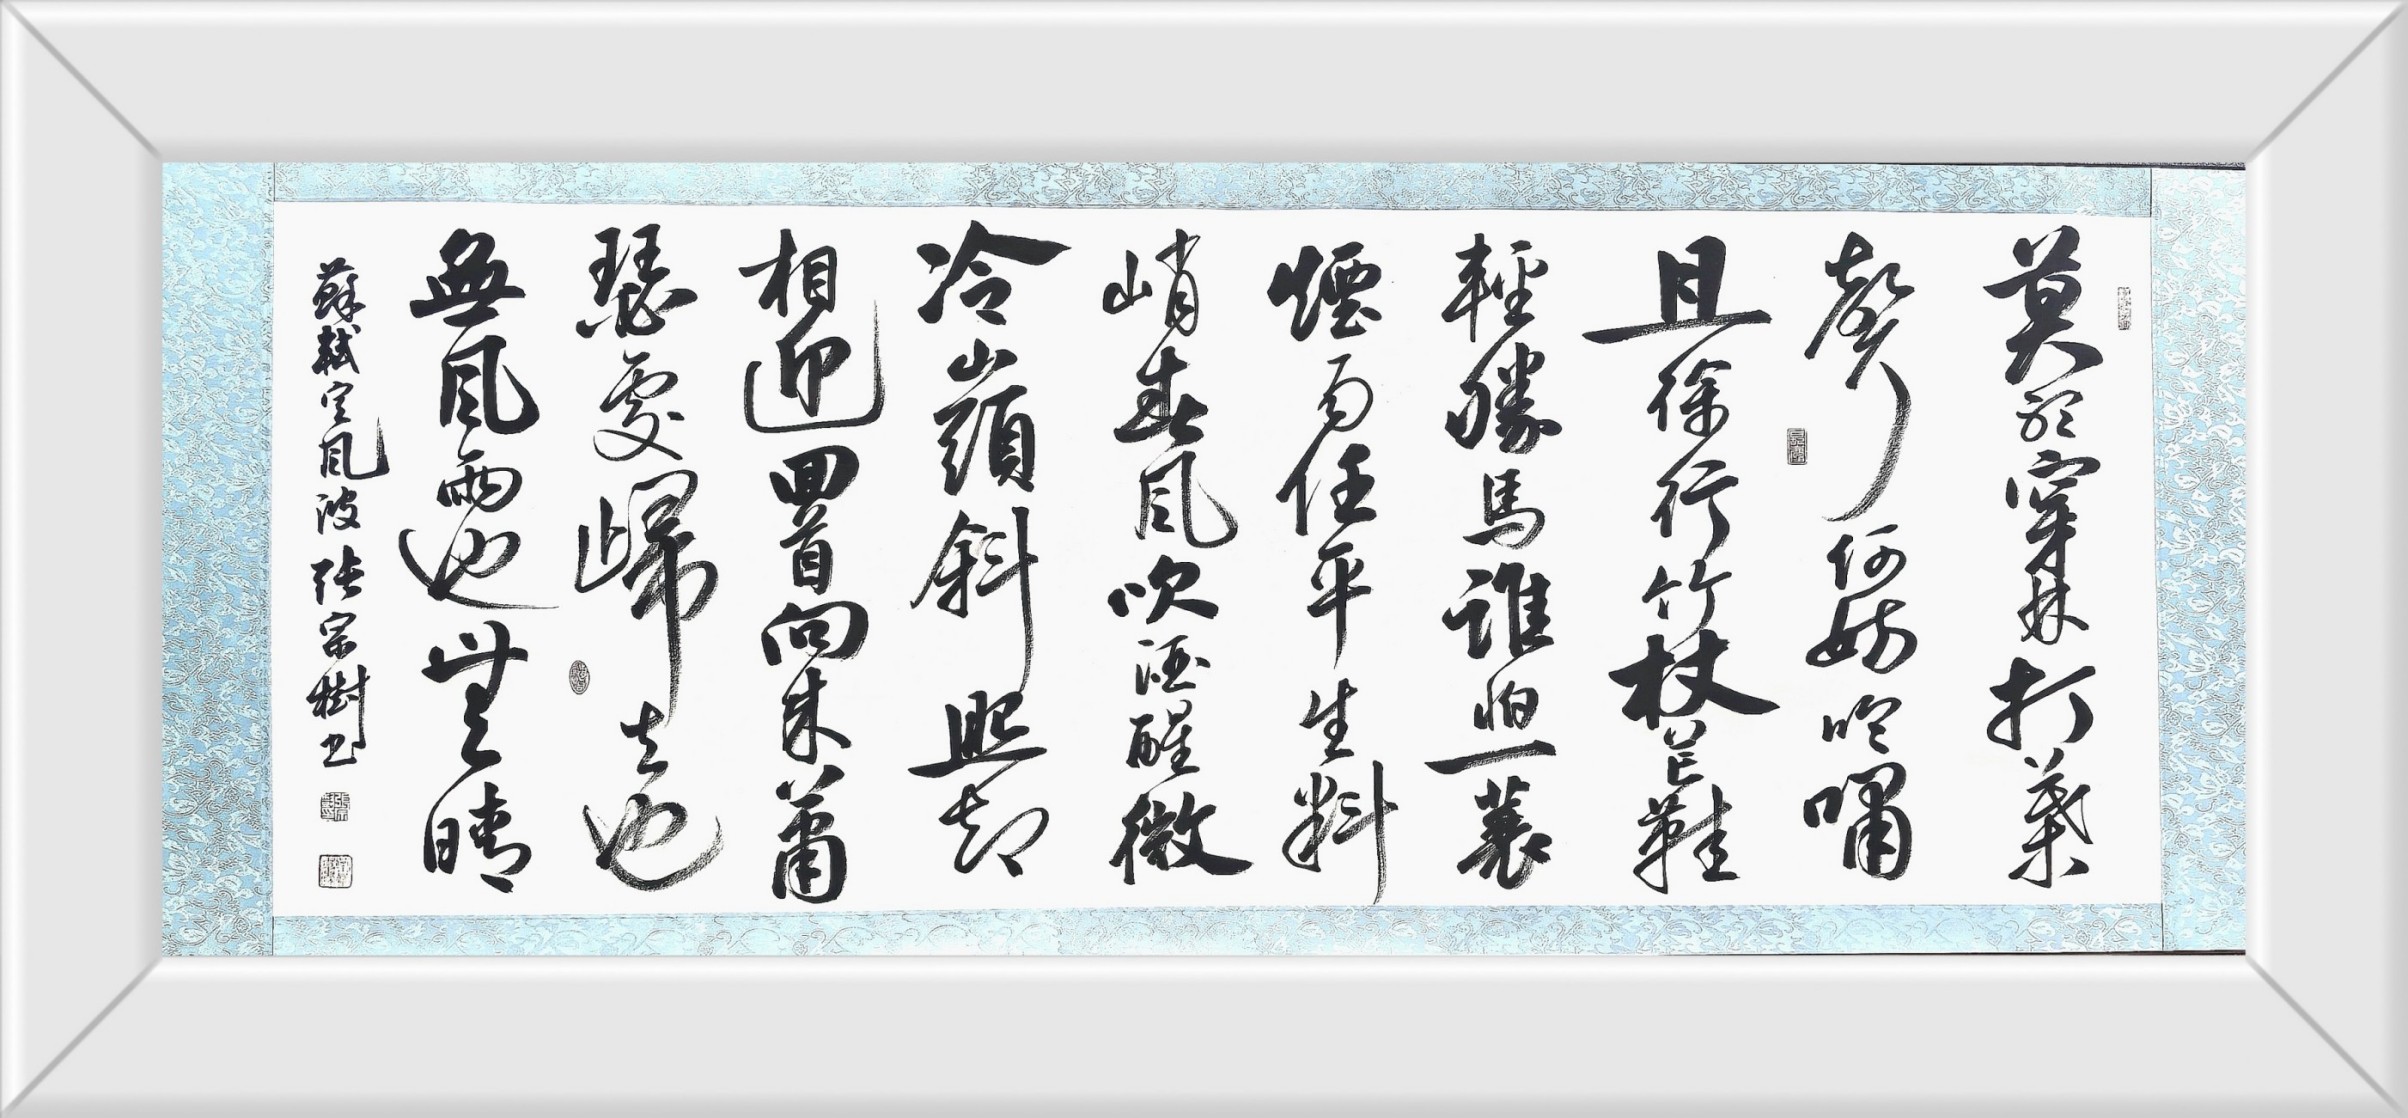 莫聽穿林打葉
聲何妨吟嘯
且徐行竹杖芒鞋
輕勝馬誰怕一蓑
煙雨任平生料
峭春風吹酒醒微
冷山頭斜照却
相迎回首向來蕭
瑟處歸去也
無風雨也無晴
蘇軾定風波 張宗樹书